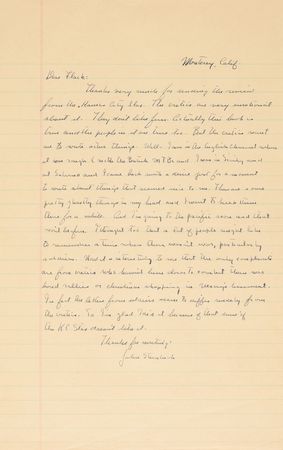 Monterey, Calif.
Dear Flack:
Thanks very much for sending the review
from the Kansas City Star. The critics are very emotional
about it. They don't like fun. Actually this book is
fun and the people in it are true too. But the critics want
me to write other things. Well I was in the English Channel when
it was rough with the British M.T.Bs and I was in Italy and
at Salerno and I came back with a desire just for a moment
to write about things that seemed nice to me. There are some
pretty ghastly things in my head and I want to leave them
there for a while. And I'm going to the pacific soon and that
won't be fun. I thought too that a lot of people might like
to remember a time when there wasn't war, particularly
soldiers. And it is interesting to me that the only complaints
are from critics who haven't been closer to combat than
bond rallies or christmas shopping in basement.
In fact the letters from soldiers seem to differ from
the critics. So I'm glad of that some of
the K.C. Star doesn't like it.
Thanks for writing:
John Steinbeck